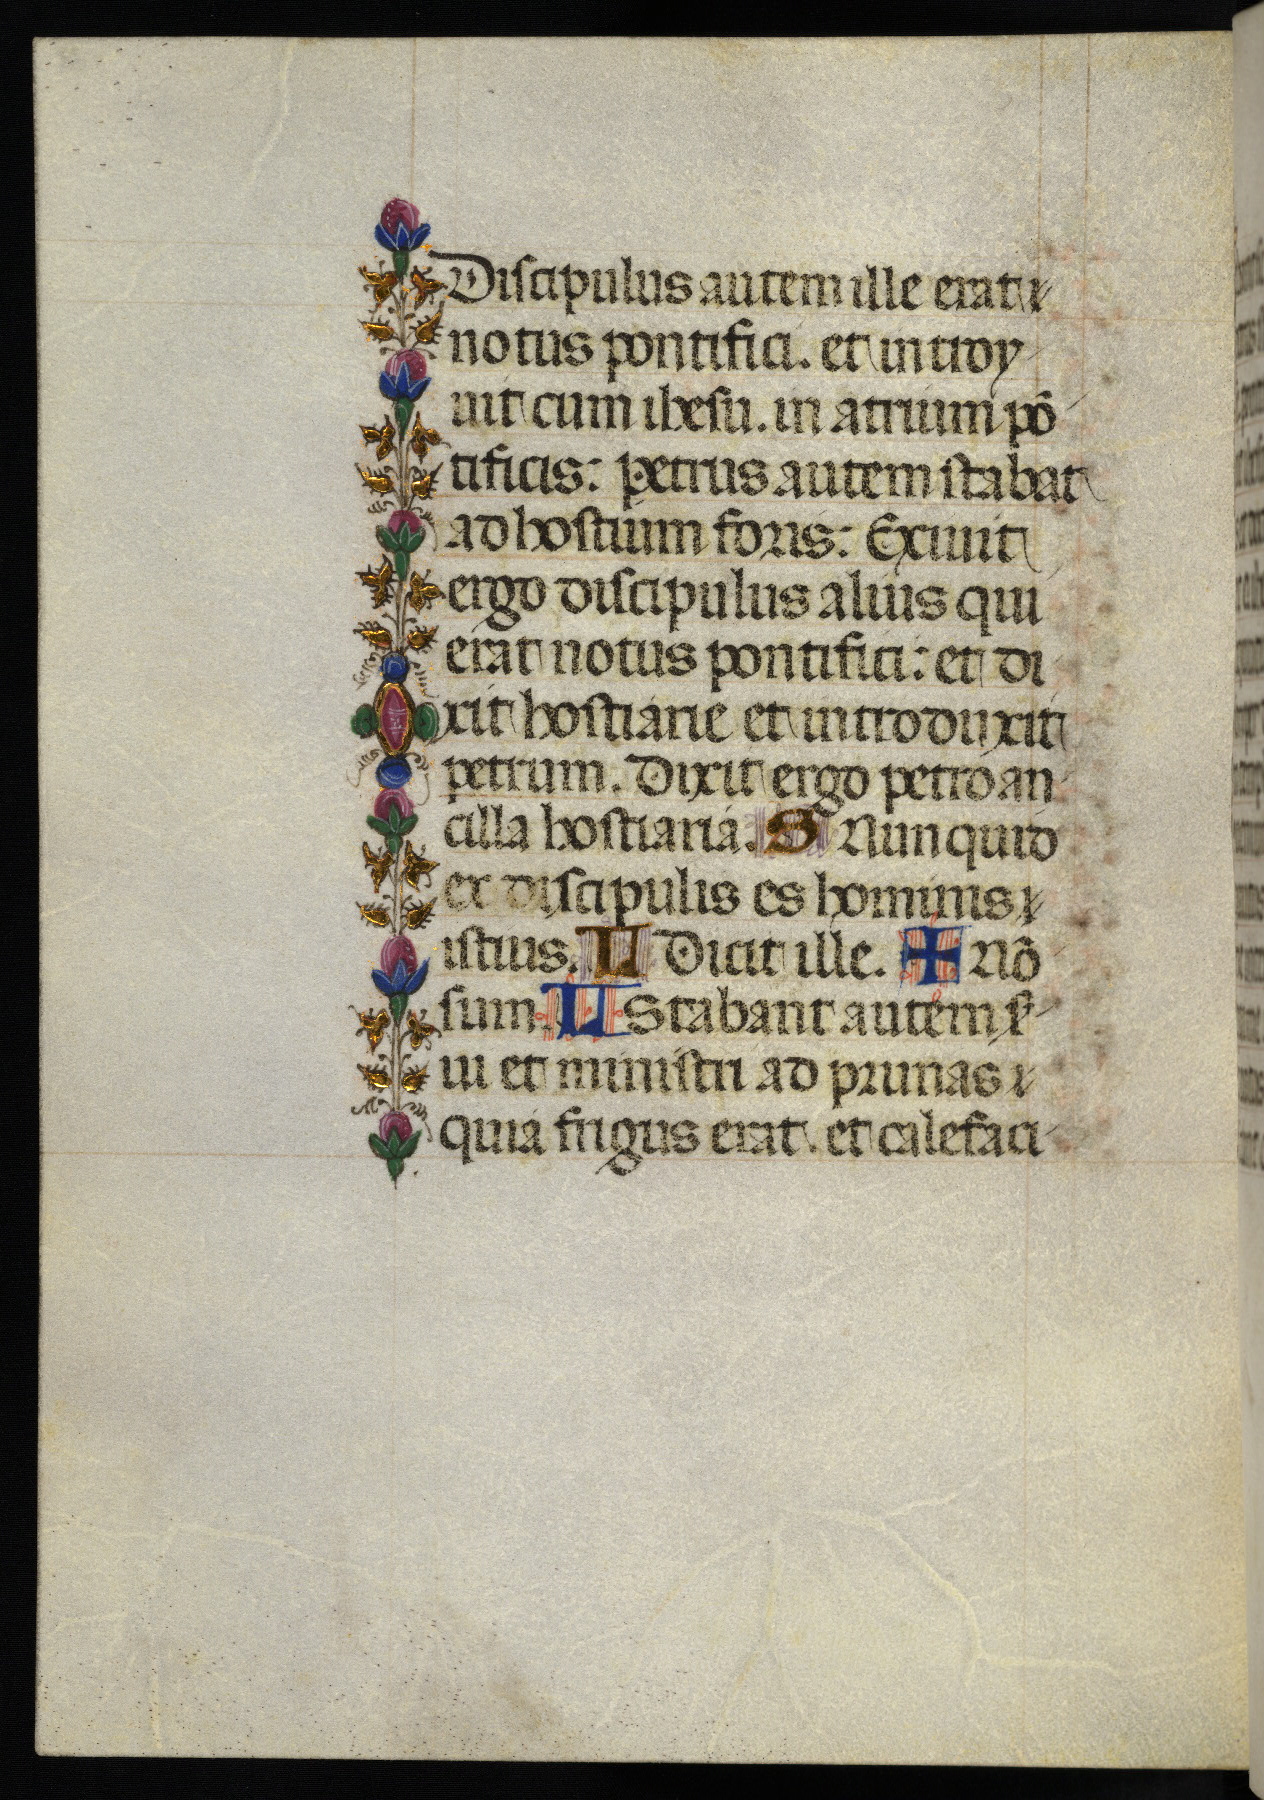 Discipulus autem ille erat
notus pontifici. et introy
uit cum ihesu. in atrium põ
tificis: petrus autem stabat
ad hostium foris: Exiuit
ergo discipulus alius qui
erat notus pontifici: et di
xit hostiarie et introduxit
petrum. Dixit ergo petro an
cilla hostiaria. S Nunquid
ex discipulis es hominis
istius. U Dicit ille. + Nõ
sum. U Stabant autem ẜ
ui et ministri ad prunas
quia frigus erat. et calefaci